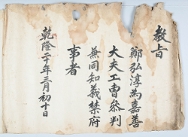 敎旨
鄭弘淳爲嘉善
大夫工曹叅判
兼同知義禁府
事者
乾隆二十年三月初十日